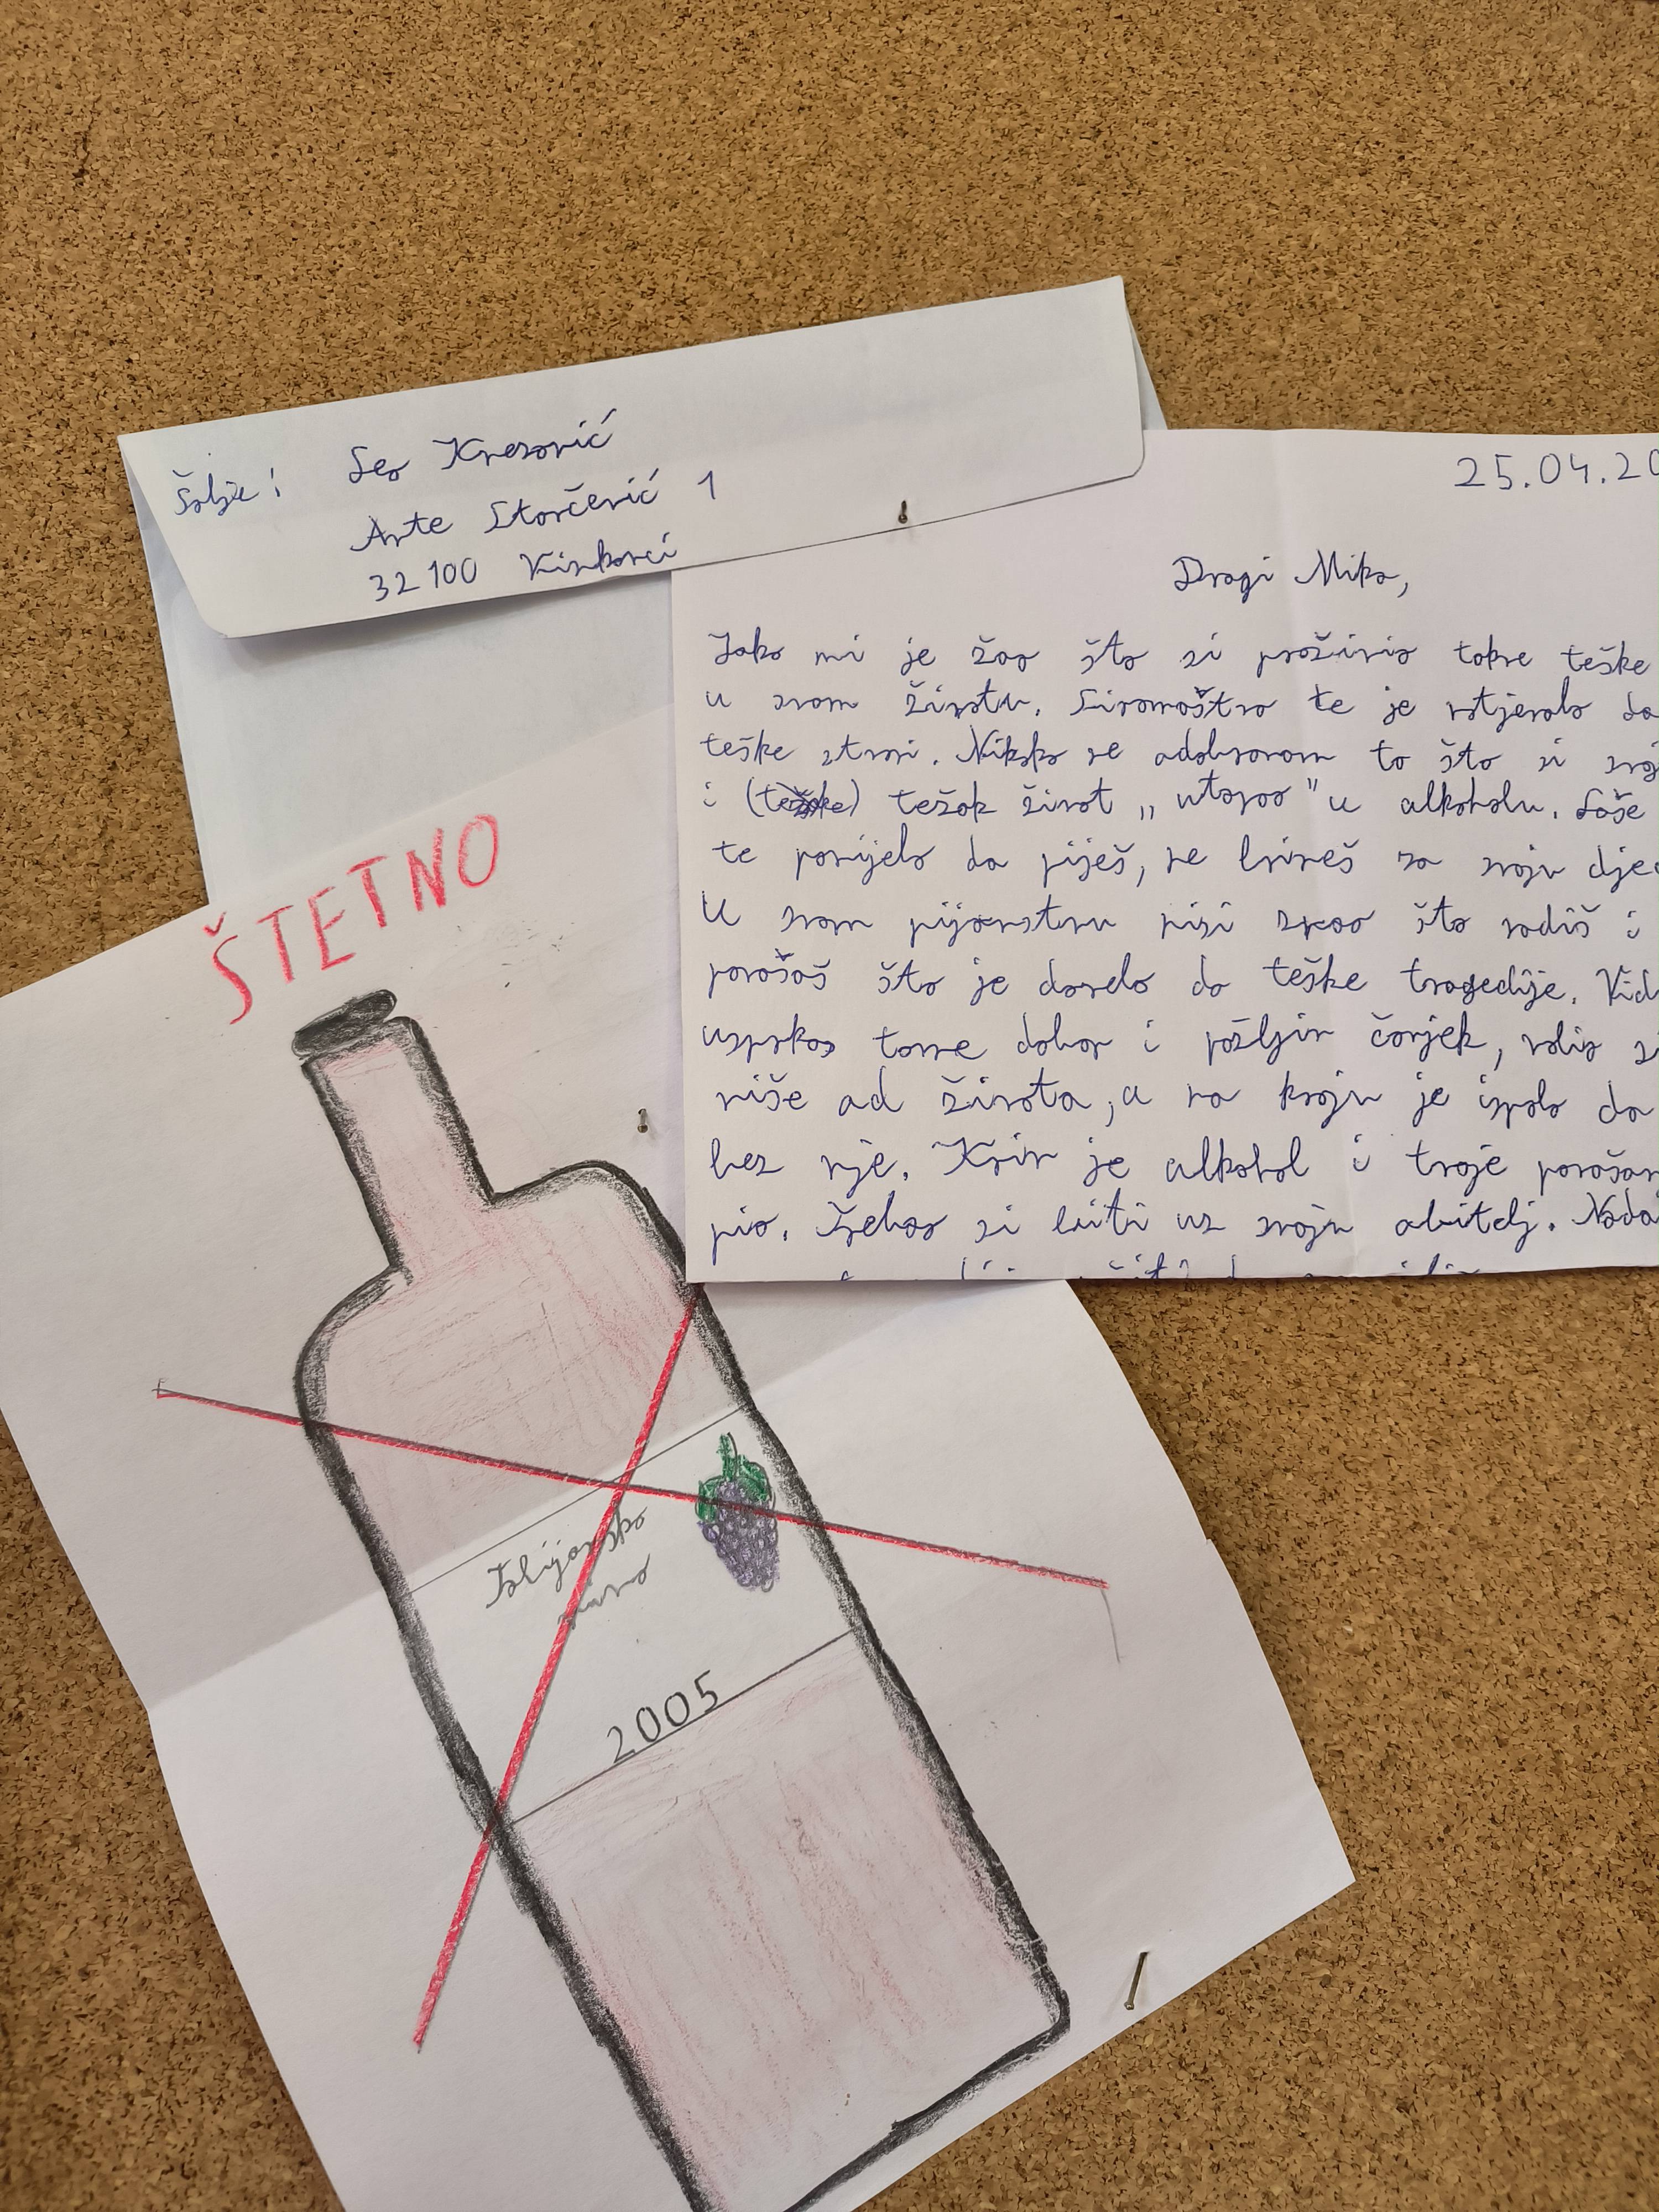 Šalje:
Leo Knezović
Ante Starčević 1
32100 Vinkovci
25.04.20
Dragi Mika,
Jako mi je žao što si proživio takve teške
u svom životu. Siromaštvo te je natjeralo da
teške stvari. Nikako ne odobravam to što si svoj
i (teške) težak život „utapao" u alkoholu. Loše
te ponijelo da piješ, ne brineš za svoju djec
U svom pijanstvu nisi znao što radiš i
ponašaš što je dovelo do teške tragedije. Vid
usprkos tome dobar i pažljiv čovjek, volio si
više od života, a na kraju je ispalo da
bez nje. Kriv je alkohol i tvoje ponašan
pio. Trebao si biti uz svoju obitelj. Nada
ŠTETNO
Iblijarsko
vino
2005